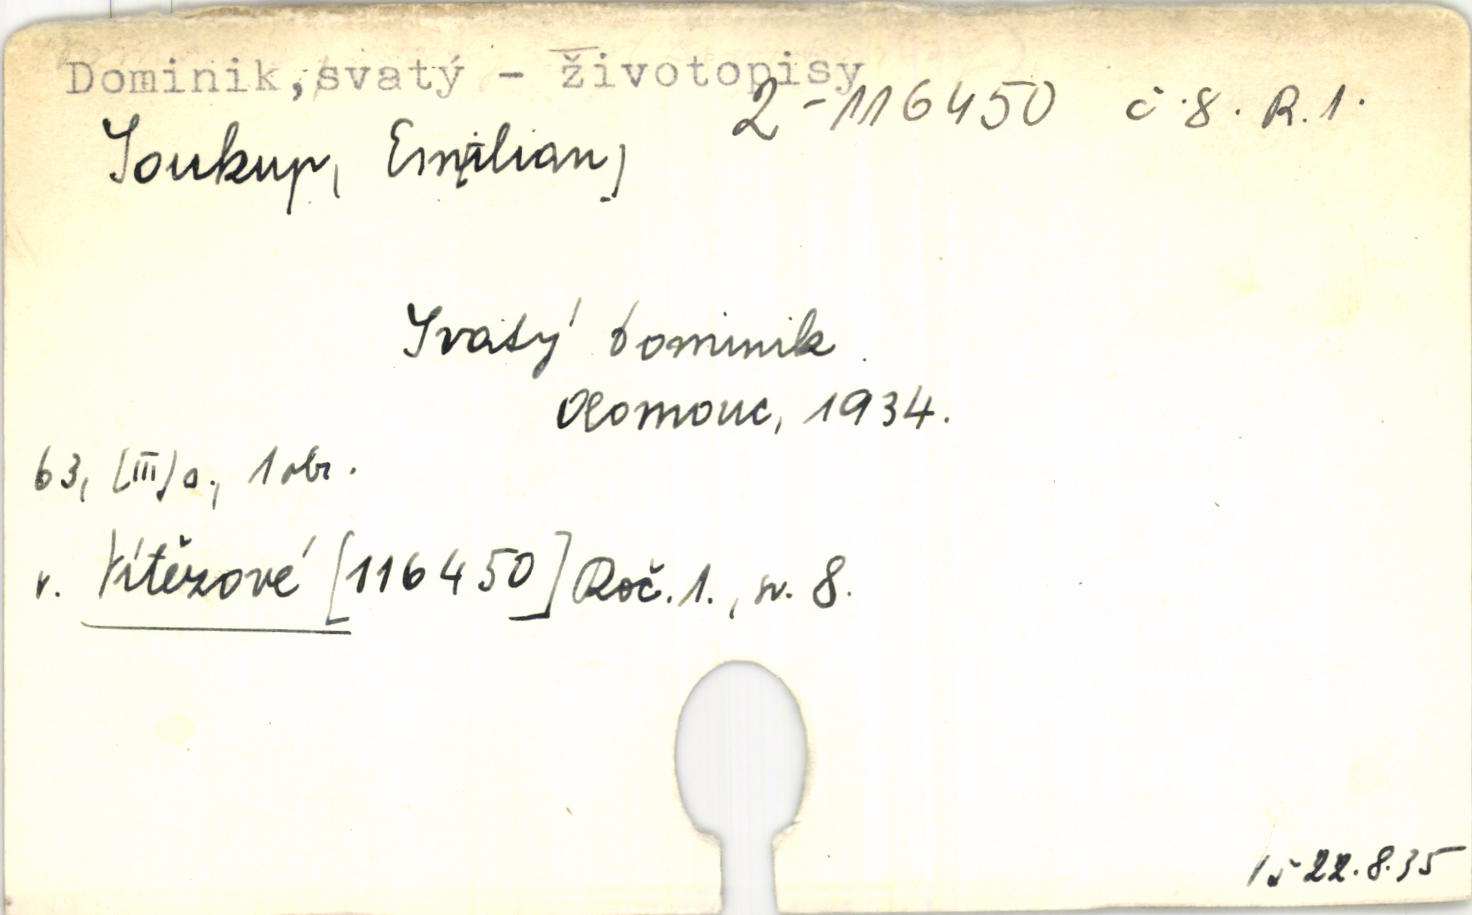 Dominik, svatý - životopisy
2-116450 č. 8. R. 1.
Soukup, Emilian,
Svatý Dominik.
Olomouc, 1934.
63, [III] s., 1 obr.
v. Vítězové [116450] Roč. 1., sv. 8.
22.8.35